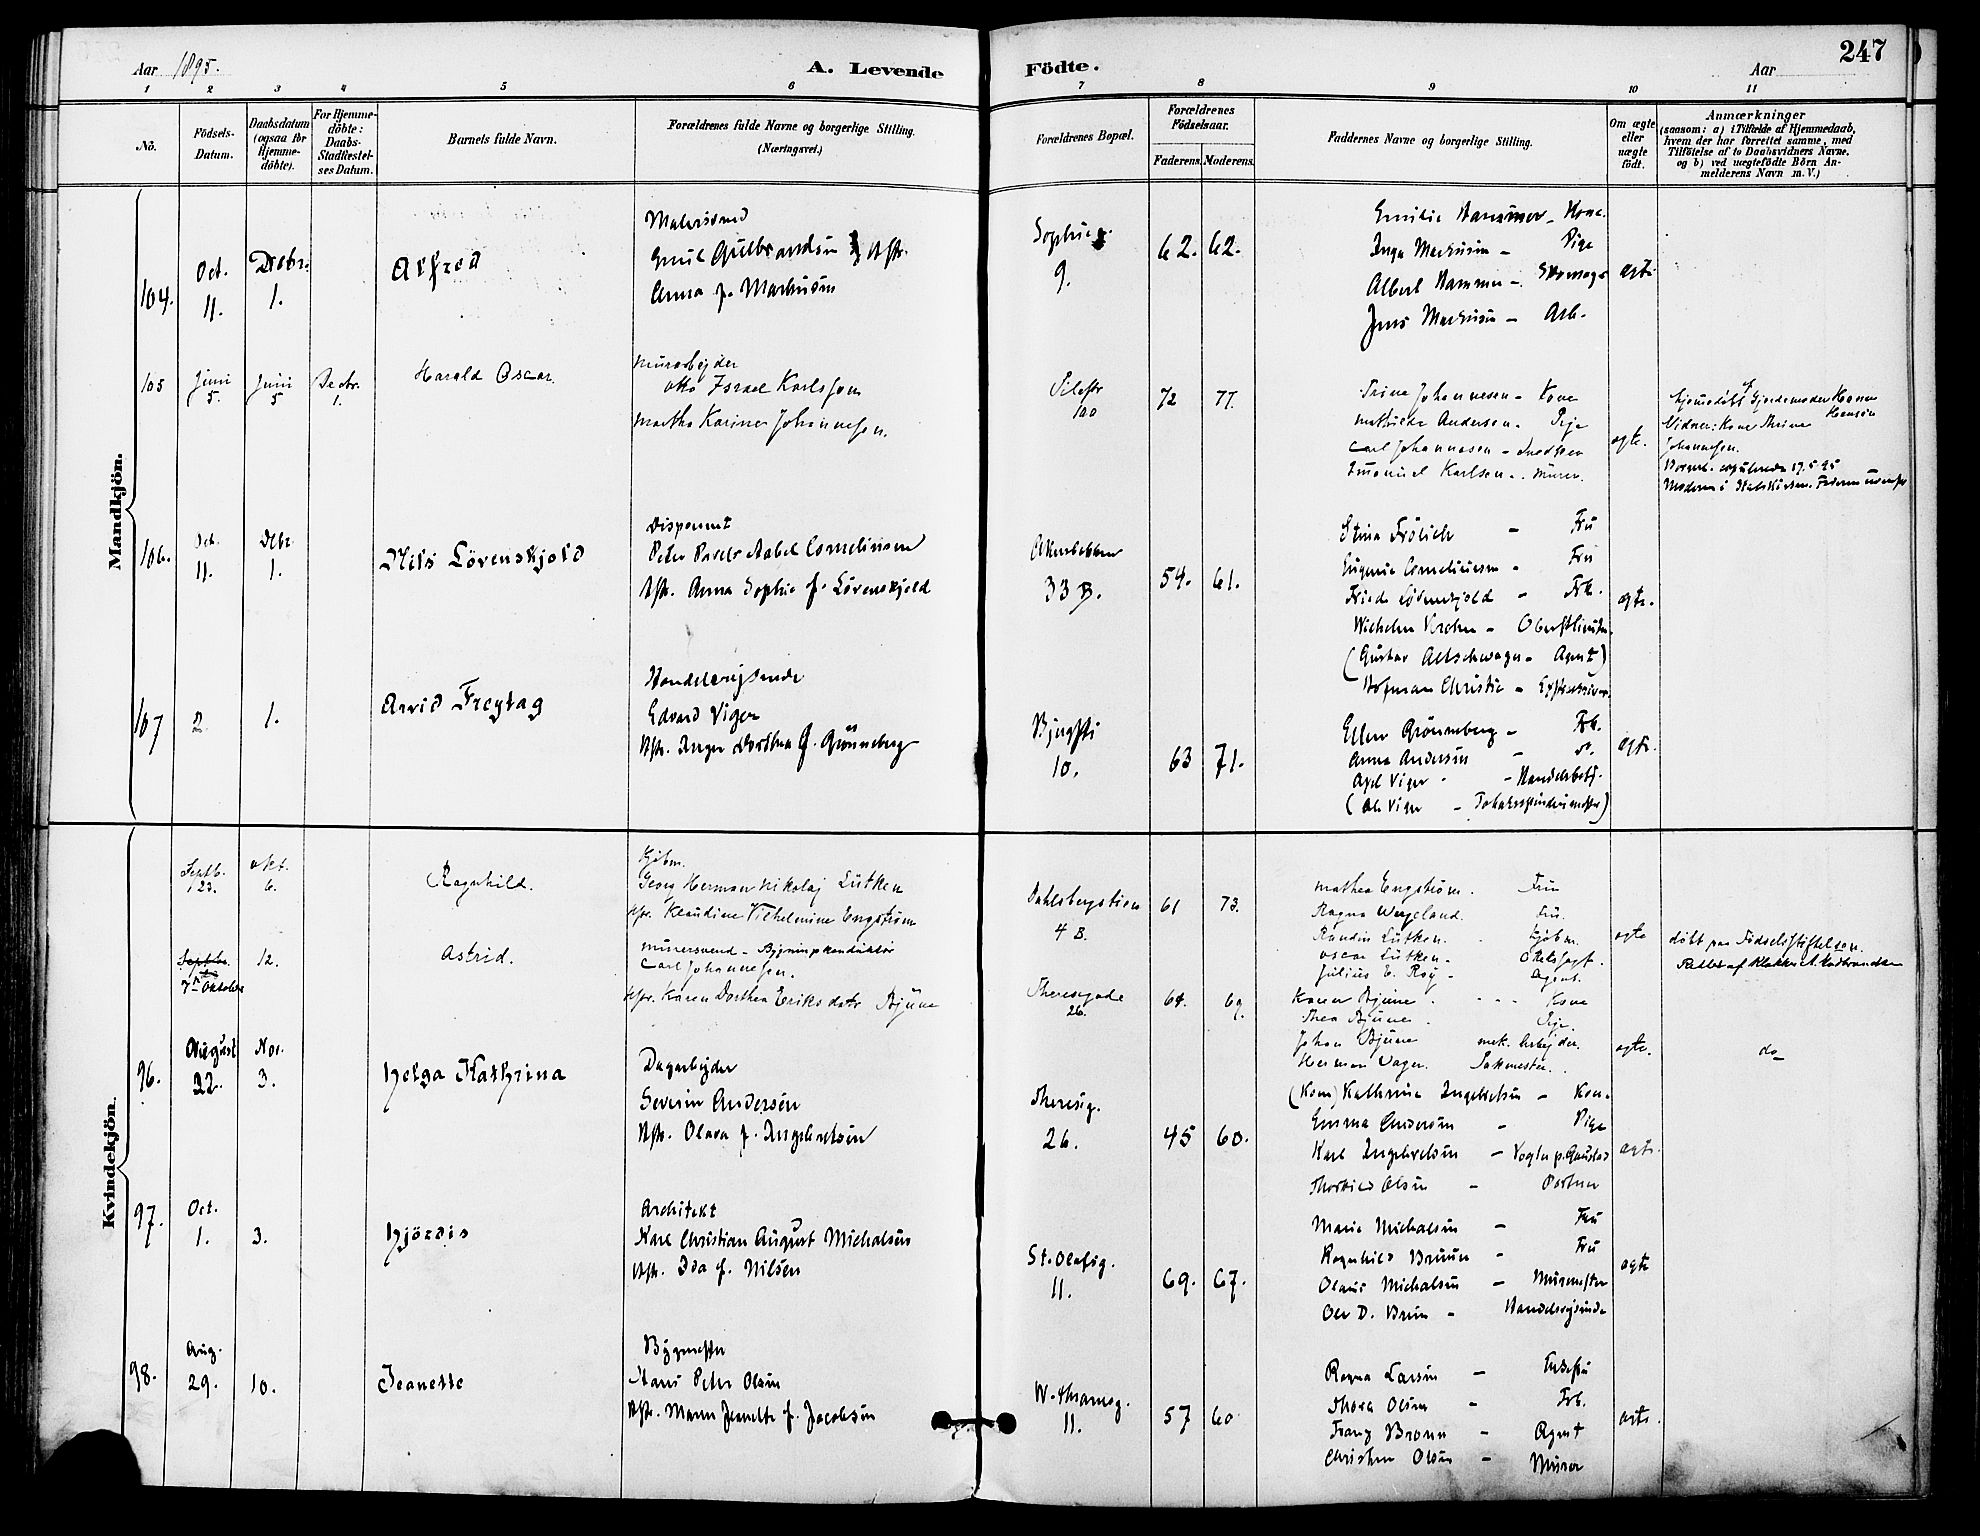 Aar 1895.
A. Levende Födte.
Aar
247
1 2 3 4 5 6 7 8 9 10 11
No.
Födsels-Datum.
Daabsdatum (ogsaa for Hjemme-döbte).
For Hjemme-döbte: Daabs-Stadfæstel-ses Datum.
Barnets fulde Navn.
Forældrenes fulde Navne og borgerlige Stilling.
(Næringsvei.)
Forældrenes Bopæl.
Forældrenes Födselsaar.
Faderens. Moderens.
Faddernes Navne og borgerlige Stilling.
Om ægte eller uægte födt.
Anmærkninger
(saasom: a) i Tilfælde af Hjemmedaab,
hvem der har forrettet samme, med
Tilföielse af to Daabsvidners Navne.
og b) ved uægtefödte Börn An-
melderens Navn m. V.)
Mandkjön.
104. Oct. 11. Decbr. 1.
Alfred
Malersvend
Emil Gulbrandsen
Anna f. Markusen
Sophieg. 9.
62. 62.
Emilie Hammer - Kone.
Inga Markusen - Pige
Albert Hammer - Skomager
Jens Markusen - Arb.
ægte
105 Juni 5. Juni 5 Decbr. 1.
Harald Oscar.
Murarbejder
Otto Israel Karlsson
Martha Karine Johannessen.
Pilestr 100
72 77.
Trine Johannesen - Kone
Mathilde Andersen - Pige
Carl Johannesen - Snedker
Emanuel Karlsen - Murer.
ægte.
Hjemmedöbt af Gjordemoder Karen Hansen
Vidner: Kone Thrine
Johannesen.
106. Oct. 11. Decbr. 1.
Nils Lövenskjold
Disponent
Peter Andreas Aabel Corneliussen
Hstr. Anna Sophie f. Lövenskjold
Akersbakken 33 B.
54. 61.
Stina Frölich - Fru
Eugenie Corneliussen - Fru
Frida Lövenskjold - Frk.
Wilhelm - Oberstlieutn.
(Gustav Altschwager - Agent)
Hofman Christie -
ægte.
107 2 1.
Arvid Freytag
Handelsreisende
Edvard Viger
Hstr. Inger Dorthea f. Grönneberg
Bjergsti 10.
63 71.
Ellen Grönneberg - Frk.
Anna Andersen - do.
Axel Viger - Handelsbetj.
(Ole Viger - Tobaksspindermester)
ægte.
Kvindekjön.
Septb. 23. Okt. 6.
Ragnhild.
Kjöbm.
Georg Herman Nikolaj Lütken
Hstr. Klaudine Vilhelmine Engström
Dahlsbergstien 4 B.
61 73.
Mathea Engström. Fru
Ragna Wergeland. Fru.
Randin Lütken. Kjöbm.
Oscar Lütken -
Julius E. Roy - Agent.
ægte
döbt paa Födselsstiftelsen.
Septbr. 7de Oktober 12.
Astrid.
Murersvend - Bygningskonduktör
Carl Johannesen.
Hstr. Karen Dorthea Eriksdatr Bjune
Theresegade 26.
64. 69.
Karen Bjune. Kone
Thea Bjune. Pige.
Johan Bjune mek. Arbejder.
Herman Vager. Sakmester.
ægte.
do
96. August 22. Nov. 3.
Helga Kathrina
Dagarbejder
Severin Andersen
Hstr. Olava f. Ingebretsen
Theresg. 26.
45 60.
(Kone) Kathrine Ingebretsen - Kone
Emma Andersen - Pige
Karl Ingebretsen - Vogter p. Gaustad
Thorvald Olsen - Portner
ægte.
97. Oct. 1. 3.
Hjördis
Architekt
Karl Christian August Michalsen
Hstr. Ida f. Nilsen
St. Olafsg. 11.
69. 67.
Marie Michalsen - Fru
Ragnhild Bruun - Fru
Olaus Michalsen - Murmester
Ole D. Bruun - Handelsreisende
ægte
98. Aug. 29. 10.
Jeanette
Bygmester
Hans Peter Olsen
Hstr. Maren Jeanette f. Jacobsen
W. Thranesg. 11.
57 60
Ragna Larsen - Enkefru
Thora Olsen - Frk.
Franz Bronn - Agent
Christian Olsen - Murer
ægte.